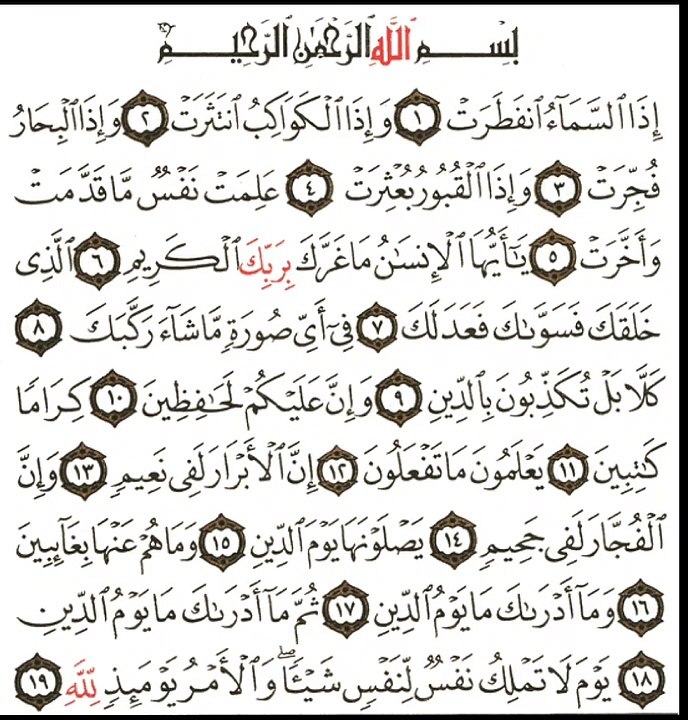 بِسْمِ ٱللَّهِ ٱلرَّحْمَٰنِ ٱلرَّحِيمِ
إِذَا ٱلسَّمَآءُ ٱنفَطَرَتْ ١ وَإِذَا ٱلْكَوَاكِبُ ٱنتَثَرَتْ ٢ وَإِذَا ٱلْبِحَارُ
فُجِّرَتْ ٣ وَإِذَا ٱلْقُبُورُ بُعْثِرَتْ ٤ عَلِمَتْ نَفْسٌ مَّا قَدَّمَتْ
وَأَخَّرَتْ ٥ يَٰٓأَيُّهَا ٱلْإِنسَٰنُ مَا غَرَّكَ بِرَبِّكَ ٱلْكَرِيمِ ٦ ٱلَّذِى
خَلَقَكَ فَسَوَّىٰكَ فَعَدَلَكَ ٧ فِىٓ أَىِّ صُورَةٍ مَّا شَآءَ رَكَّبَكَ ٨
كَلَّا بَلْ تُكَذِّبُونَ بِٱلدِّينِ ٩ وَإِنَّ عَلَيْكُمْ لَحَٰفِظِينَ ١٠ كِرَامًا
كَٰتِبِينَ ١١ يَعْلَمُونَ مَا تَفْعَلُونَ ١٢ إِنَّ ٱلْأَبْرَارَ لَفِى نَعِيمٍ ١٣ وَإِنَّ
ٱلْفُجَّارَ لَفِى جَحِيمٍ ١٤ يَصْلَوْنَهَا يَوْمَ ٱلدِّينِ ١٥ وَمَا هُمْ عَنْهَا بِغَآئِبِينَ
١٦ وَمَآ أَدْرَىٰكَ مَا يَوْمُ ٱلدِّينِ ١٧ ثُمَّ مَآ أَدْرَىٰكَ مَا يَوْمُ ٱلدِّينِ
١٨ يَوْمَ لَا تَمْلِكُ نَفْسٌ لِّنَفْسٍ شَيْـًٔا ۖ وَٱلْأَمْرُ يَوْمَئِذٍ لِّلَّهِ ١٩